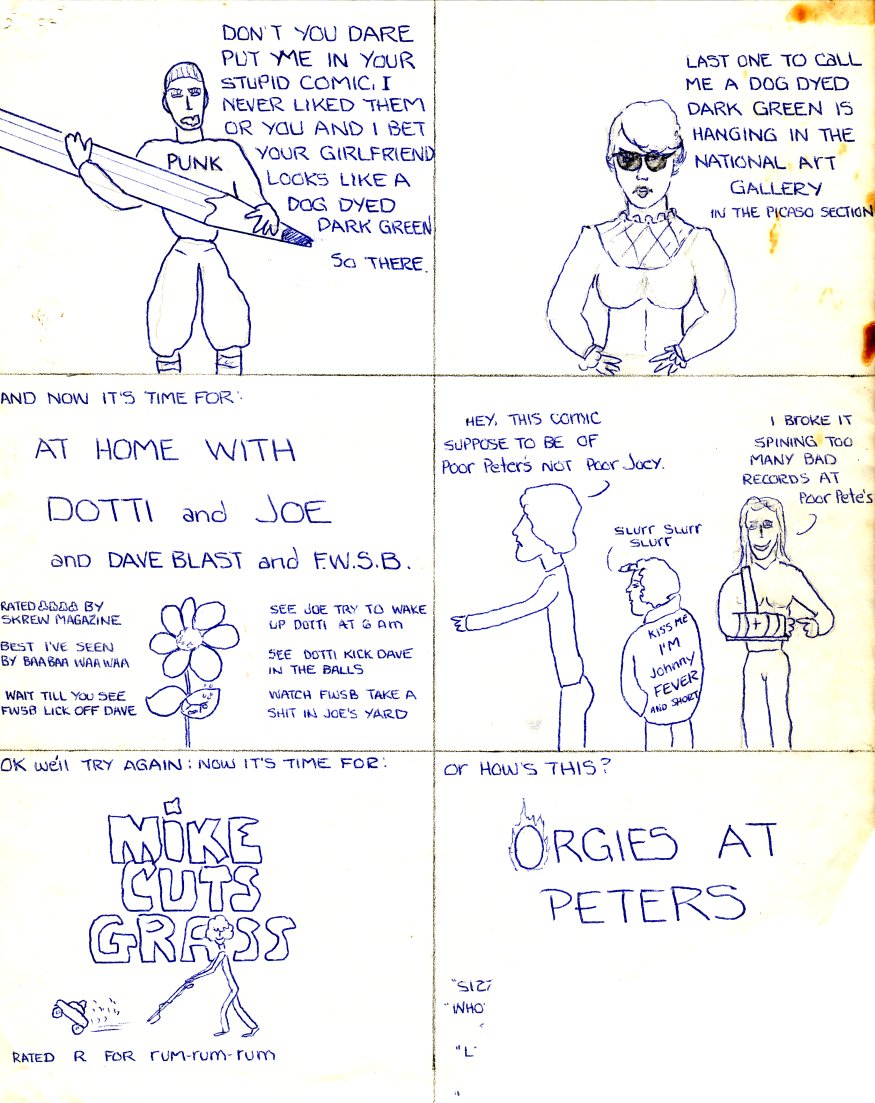 DON'T YOU DARE
PUT ME IN YOUR
STUPID COMIC, I
NEVER LIKED THEM
OR YOU AND I BET
YOUR GIRLFRIEND
LOOKS LIKE A
DOG DYED
DARK GREEN
SO THERE.
PUNK
LAST ONE TO CALL
ME A DOG DYED
DARK GREEN IS
HANGING IN THE
NATIONAL ART
GALLERY
IN THE PICASO SECTION
AND NOW IT'S TIME FOR:
AT HOME WITH
DOTTI and JOE
and DAVE BLAST and F.W.S.B.
RATED BY
SKREW MAGAZINE
BEST I'VE SEEN
BY BAABAA WAAWAA
WAIT TILL YOU SEE
FWSB LICK OFF DAVE
SEE JOE TRY TO WAKE
UP DOTTI AT 6 AM
SEE DOTTI KICK DAVE
IN THE BALLS
WATCH FWSB TAKE A
SHIT IN JOE'S YARD
HEY, THIS COMIC
SUPPOSE TO BE OF
Poor Peter's NOT Poor Joey.
SLURR SLURR
SLURR
I BROKE IT
SPINING TOO
MANY BAD
RECORDS AT
Poor Pete's
KISS ME
I'M
Johnny
FEVER
AND SHORT
OK we'll TRY AGAIN: NOW IT'S TIME FOR:
MIKE
CUTS
GRASS
RATED R FOR rum-rum-rum
or HOW'S THIS?
ORGIES AT
PETERS
"SIZ
"WHO
"L